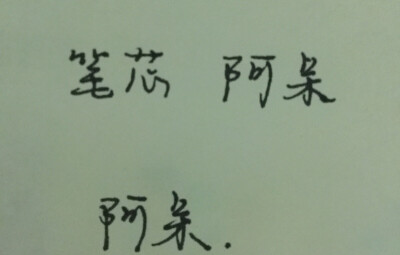 笔芯 阿呆
阿呆.